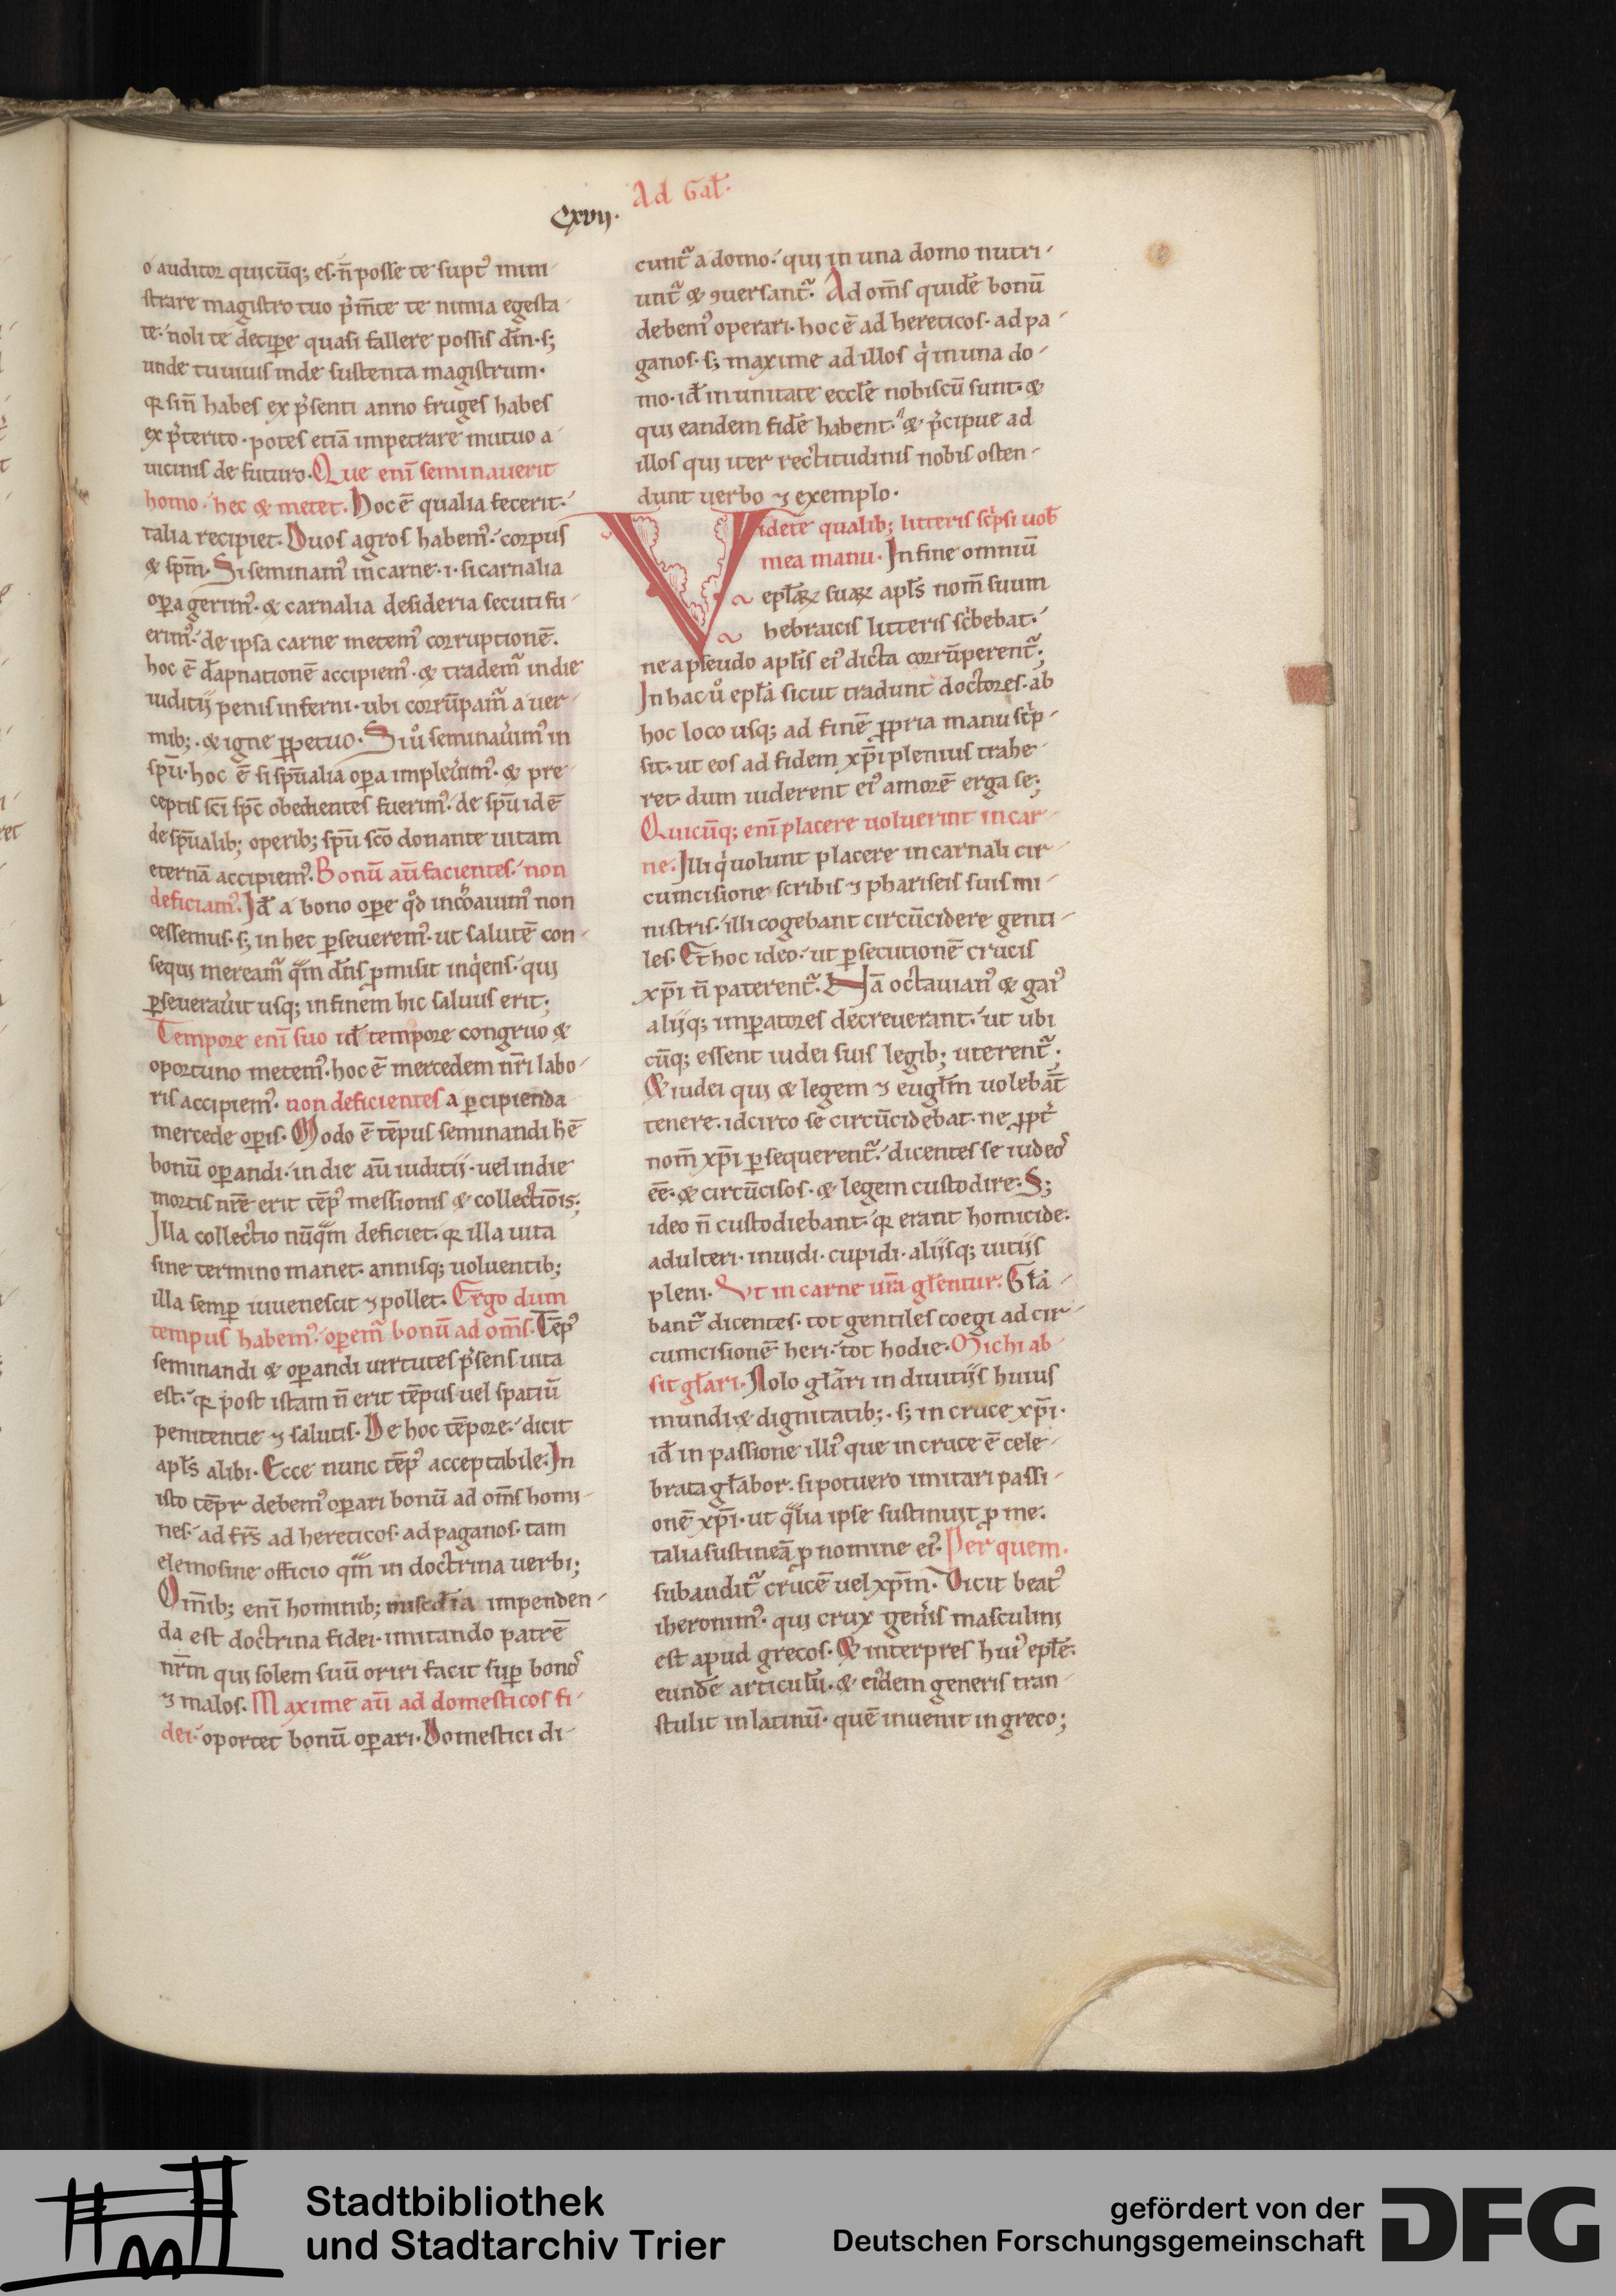 Ad Gal̄.
Cxvij.
o auditor quicūq; eſ. n̄ poſſe te ſupt᷒ mini-
ſtrare magiſtro tuo p̓m̄te te nimia egeſta-
te. noli te decip̲e quaſi fallere poſſiſ dn̄m. ſ;
unde tu uiuiſ inde ſuſtenta magiſtrum.
qꝛ ſin̄ habeſ ex p̓ſenti anno frugeſ habeſ
ex p̓terito. poteſ etiā impetrare mutuo a
uiciniſ de futuro. Que eni᷒ ſeminauerit
homo. hec & metet. Hoc ē qualia fecerit.
talia recipiet. Duoſ agroſ habem᷒. corpuſ
& ſpm̄. Si ſeminam᷒ in carne. i. ſi carnalia
oꝑa gerim᷒. & carnalia deſideria ſecuti fu-
erim᷒. de ipſa carne metem᷒ corruptionē.
hoc ē dāpnationē accipiem᷒. & tradem̃ in die
iuditij peniſ inferni. ubi corrūpam̃ a uer-
mib;. & igne ꝑpetuo. Si u̓o ſeminau̓im᷒ in
ſpū. hoc ē ſi ſpūalia oꝑa impleu̓im᷒. & pre-
ceptiſ ſc̄i ſpc̄ obedienteſ fuerim᷒. de ſpū id ē
de ſpūalib; operib; ſpū ſcō donante uitam
eternā accipiem᷒. Bonū aū facienteſ. non
deficiam᷒. Id̄ a bono oꝑe qd̓ inchoauim᷒ non
ceſſemuſ. ſ; in hec ꝑſeuerem᷒. ut ſalutē con-
ſequi meream̃ quam dn̄ſ ꝓmiſit inq̓enſ. qui
ꝑſeuerau̓it uſq; in finem hic ſaluuſ erit;
Tempore eni᷒ ſuo id̄ tempore congruo &
oportuno metem᷒. hoc ē mercedem nr̄i labo-
riſ accipiem᷒. non deficienteſ a ꝑcipienda
mercede oꝑiſ. Modo ē tēpuſ ſeminandi h̄ ē
bonū oꝑandi. in die aū iuditij. uel in die
mortiſ nr̄e erit tēp᷒ meſſioniſ & collectiōiſ;
Illa collectio nūquam deficiet. qꝛ illa uita
ſine termino manet. anniſq; uoluentib;
illa ſemꝑ iuueneſcit ⁊ pollet. Ergo dum
tempuſ habem᷒. oꝑem̃ bonū ad om̄ſ. Tēp᷒
ſeminandi & oꝑandi uirtuteſ p̓ſenſ uita
eſt. qꝛ poſt iſtam n̄ erit tēpuſ uel ſpatiū
penitentie ⁊ ſalutiſ. De hoc tēpore. dicit
apl̄ſ alibi. Ecce nunc tēp᷒ acceptabile. In
iſto tēpr debem᷒ oꝑari bonū ad om̄ſ homi-
neſ. ad fr̄ſ ad hereticoſ. ad paganoſ. tam
elemoſine officio quam in doctrina uerbi;
Om̄ib; eni᷒ hominib; miſcd̄ia impenden-
da eſt doctrina fidei. imitando patrē
nr̄m qui ſolem ſuū oriri facit ſuꝑ bono᷒
⁊ maloſ. Maxime aū ad domeſticoſ fi-
dei. oportet bonū oꝑari. Domeſtici di-
cunt̃ a domo. qui in una domo nutri-
unt̃ & ꝯuerſant̃. Ad om̄ſ quidē bonū
debem᷒ operari. hoc ē ad hereticoſ. ad pa-
ganoſ. ſ; maxime ad illoſ q̓ in una do-
mo. id̄ in unitate eccl̄e nobiſcū ſunt. &
qui eandem fidē habent. & p̓cipue ad
illoſ qui iter rectitudiniſ nobiſ oſten-
dunt uerbo ⁊ exemplo.
Videte qualib; litteriſ ſc̓pſi uob̄
mea manu. In fine omniū
epl̄aꝝ ſuaꝝ apl̄ſ nom̄ ſuum
hebraiciſ litteriſ ſc̓bebat.
ne a pſeudo apl̄iſ ei᷒ dicta corrūperent̃;
In hac u̓o epl̄a ſicut tradunt doctoreſ. ab
hoc loco uſq; ad finē ꝓpria manu ſc̓p-
ſit. ut eoſ ad fidem xp̄i pleniuſ trahe-
ret. dum uiderent ei᷒ amorē erga ſe;
Quicūq; eni᷒ placere uoluerint in car-
ne. Illi q̓ uolunt placere in carnali cir-
cumciſione ſcribiſ ⁊ phariſeiſ ſuiſ mi-
niſtriſ. illi cogebant circūcidere genti-
leſ. Et hoc ideo. ut ꝑſecutionē cruciſ
xp̄i n̄ paterent̃. Nā octauian᷒ & gai᷒
alijq; imꝑatoreſ decreuerant. ut ubi
cūq; eſſent iudei ſuiſ legib; uterent̃;
& iudei qui & legem ⁊ eugl̄m uolebāt
tenere. idcirco ſe circūcidebat. ne ꝓpt̓
nom̄ xp̄i ꝑſequerent̃. dicenteſ ſe iudeo᷒
eē. & circūciſoſ. & legem cuſtodire. S;
ideo n̄ cuſtodiebant. qꝛ erant homicide.
adulteri. inuidi. cupidi. alijſq; uitijſ
pleni. Vt in carne ur̄a gl̄entur. Gl̄a-
bant̃ dicenteſ. tot gentileſ coegi ad cir-
cumciſionē heri. tot hodie. Michi ab-
ſit gl̄ari. Nolo gl̄ari in diuitijſ huiuſ
mundi & dignitatib;. ſ; in cruce xp̄i.
id̄ in paſſione illi᷒ que in cruce ē cele-
brata gl̄abor. ſi potuero imitari paſſi-
onē xp̄i. ut qualia ipſe ſuſtinuit ꝓ me.
talia ſuſtineā ꝓ nomine ei᷒. Per quem.
ſubaudit̃ crucē uel xpm̄. Dicit beat᷒
iheronim᷒. qui crux gen̓iſ maſculini
eſt apud grecoſ. & interpreſ hui᷒ epl̄e.
eundē articulū. & ei᷒dem generiſ tran-
ſtulit in latinū. quē inuenit in greco;
Stadtbibliothek
und Stadtarchiv Trier
gefördert von der
Deutschen Forschungsgemeinschaft
DFG